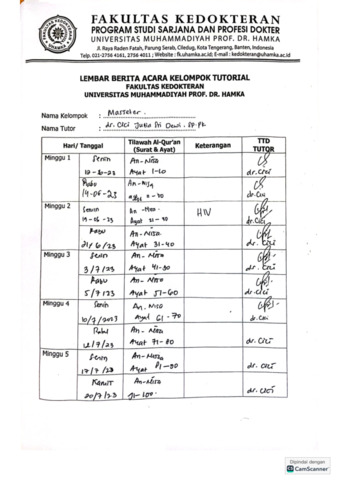 FAKULTAS KEDOKTERAN
PROGRAM STUDI SARJANA DAN PROFESI DOKTER
UNIVERSITAS MUHAMMADIYAH PROF. DR. HAMKA
Jl. Raya Raden Fatah, Parung Serab, Ciledug, Kota Tangerang, Banten, Indonesia
Telp. 021-2756 4161, 2756 4011; Website : fk.uhamka.ac.id; E-mail : kedokteran@uhamka.ac.id
LEMBAR BERITA ACARA KELOMPOK TUTORIAL
FAKULTAS KEDOKTERAN
UNIVERSITAS MUHAMMADIYAH PROF. DR. HAMKA
Nama Kelompok : Masseter
Nama Tutor : dr. Cici Pri Dewi
Hari/ Tanggal Tilawah Al-Qur'an (Surat & Ayat) Keterangan TTD TUTOR
Minggu 1 Senin An-Nisa
Ayat 1-10 dr. Cici
Rabu An-Nisa
14-06-23 dr. Cici
Minggu 2 Senin HIV
19-06-23 Ayat 21-30 dr. Cici
Rabu An-Nisa
21/6/23 Ayat 31-40 dr. Cici
Minggu 3 Senin An-Nisa
3/7/23 Ayat 41-50 dr. Cici
Rabu An-Nisa
5/7/23 Ayat 51-60 dr. Cici
Minggu 4 Senin An-Nisa
10/7/2023 Ayat 61-70 dr. Cici
An-Nisa
12/7/23 Ayat 71-80 dr. Cici
Minggu 5 Senin An-Nisa
17/7/23 Ayat 81-90 dr. Cici
Kamis An-Nisa
20/7/23 91-100 dr. Cici
Dipindai dengan
CS CamScanner